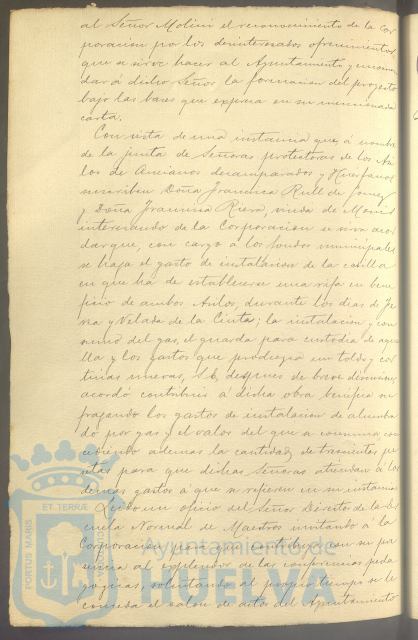 al Señor Molini el reconocimiento de la Cor
poracion por los desinteresados ofrecimientos
que se sirve hacer al Ayuntamiento y encomen
dar á dicho Señor la formacion del proyecto
bajo las bases que expresa en su mencionada
carta.
Con vista de una instancia que, á nombre
de la junta de Señoras protectoras de los Asi
los de Ancianos desamparados y Huerfanos
suscriben Doña Francisca Rull de
y Doña Francisca Riera, viuda de
interesando de la Corporacion se sirva acor
dar que, con cargo á los fondos municipales
se haga el gasto de instalacion de la casilla
en que ha de establecerse una rifa en bene
ficio de ambos Asilos, durante los dias de Fe
ria y Velada de la Cinta; la instalacion y con
sumo del gas, el guarda para custodia de aque
lla y los gastos que produzca un toldo y cor
tinas nuevas, S.E. despues de breve discusion,
acordó contribuir á dicha obra benefica su
fragando los gastos de instalacion de alumbra
do por gas y el valor del que se consuma con
cediendo ademas la cantidad de trescientas pe
setas para que dichas Señoras atiendan á los
demas gastos á que se refieren en su instancia
Leido un oficio del Señor Director de la Es
cuela Normal de Maestros invitando á la
Corporacion para que contribuya con su pre
sencia al esplendor de las conferencias peda
gogicas, solicitando al propio tiempo se le
conceda el salon de actos del Ayuntamiento
PORTUS MARIS
ET TERRÆ
CUSTODIA
Ayuntamiento de
HUELVA